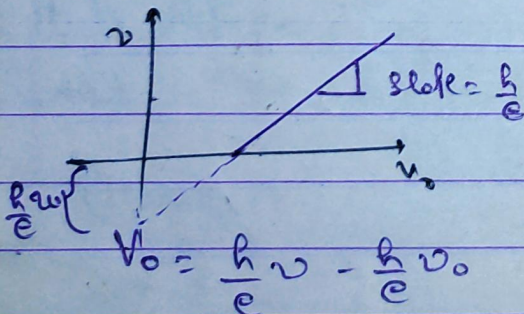 ν
slope = h/e
ν₀
h/e ν₀
V₀ = h/e ν - h/e ν₀